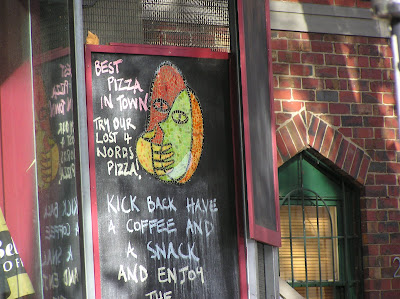 BEST
PIZZA
IN TOWN
TRY OUR
LOST 4
NORDS
PIZZA!
KICK BACK HAVE
A COFFEE AND
A
SNACK
AND ENJOY
THE